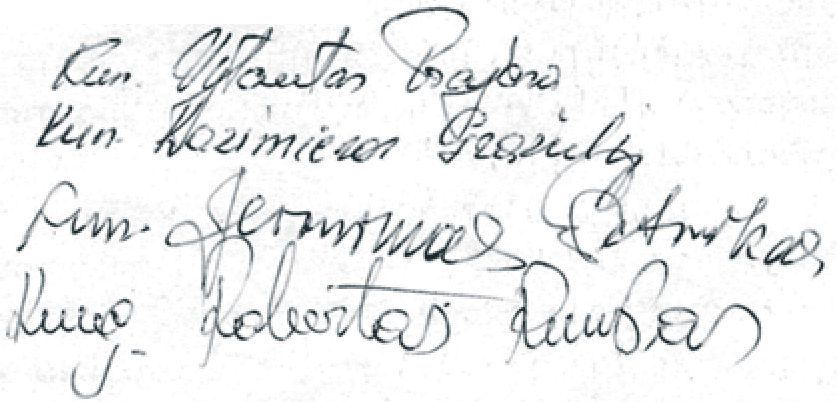 Kun. Vytautas Prajara
Kun. Kazimieras Gražulis
Kun. Jeronimas Petnikas
Kung. Robertas Rumšas